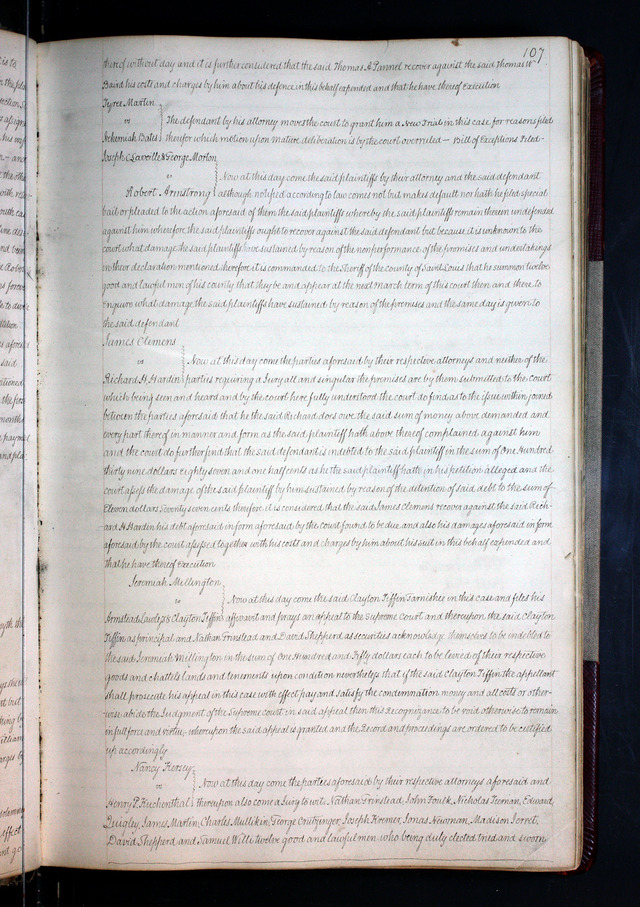 107
thereof without day and it is further considered that the said Thomas A Pannel recover against the said Thomas W
Baird his costs and charges by him about his defence in this behalf expended and that he have thereof Execution
Tyree Martin
vs The defendant by his attorney moves the court to grant him a New Trial in this case for reasons filed
Nehemiah Bates therefor which motion upon mature deliberation is by the court overruled — Bill of Exceptions Filed -
Joseph C Laveille & George Morton
vs Now at this day come the said plaintiffs by their attorney and the said defendant
Robert Armstrong although notified according to law comes not but makes default nor hath he filed special
bail or pleaded to the action aforesaid of them the said plaintiffs whereby the said plaintiffs remain therein undefended
against him wherefore the said plaintiffs ought to recover against the said defendant but because it is unknown to the
court what damage the said plaintiffs have sustained by reason of the nonperformance of the promises and undertakings
in their declaration mentioned therefore it is commanded to the Sheriff of the county of Saint Louis that he summon twelve
good and lawful men of his county that they be and appear at the next March term of this court then and there to
Enquire what damage the said plaintiffs have sustained by reason of the premises and the same day is given to
the said defendant
James Clemens
vs Now at this day come the parties aforesaid by their respective attorneys and neither of the
Richard H. Hardin parties requiring a Jury all and singular the premises are by them submitted to the court
which being seen and heard and by the court here fully understood the court do find as to the issue within joined
between the parties aforesaid that he the said Richard does owe the said sum of money above demanded and
every part thereof in manner and form as the said plaintiff hath above thereof complained against him
and the court do further find that the said defendant is indebted to the said plaintiff in the sum of One Hundred
thirty nine dollars Eighty seven and one half cents as he the said plaintiff hath in his petition alleged and the
court assess the damage of the said plaintiff by him sustained by reason of the detention of said debt to the sum of
Eleven dollars Twenty seven cents therefore it is considered that the said James Clemens recover against the said Rich-
ard H Hardin his debt aforesaid in form aforesaid by the court found to be due and also his damages aforesaid in form
aforesaid by the court assessed together with his cost and charges by him about his suit in this behalf expended and
that he have thereof Execution
Jeremiah Millington
vs Now at this day come the said Clayton Tiffin Garnishee in this case and files his
Clayton Tiffin affidavit and prays an appeal to the Supreme Court and thereupon the said Clayton
Tiffin as principal and Nathan Grinstead and David Shepperd as securities acknowledge themselves to be indebted to
the said Jeremiah Millington in the sum of One Hundred and Fifty dollars each to be levied of their respective
goods and chattels lands and tenements upon condition nevertheless that if the said Clayton Tiffin the appellant
shall prosecute his appeal in this case with Effect pay and satisfy the condemnation money and all costs or other-
wise abide the Judgment of the Supreme court in said appeal then this Recognizance to be void otherwise to remain
in full force and virtue, whereupon the said appeal is granted and the Record and proceedings are ordered to be certified
up accordingly
Nancy Kersey
vs Now at this day come the parties aforesaid by their respective attorneys aforesaid and
Henry P. thereupon also come a Jury to wit, Nathan Grinstead, John Foulk, Nicholas Edward
Quigley James Martin, Charles Mullikin, George Joseph Kremer, Jonas Newman, Madison
David Shepperd, and Samuel Willi twelve good and lawful men who being duly elected tried and sworn